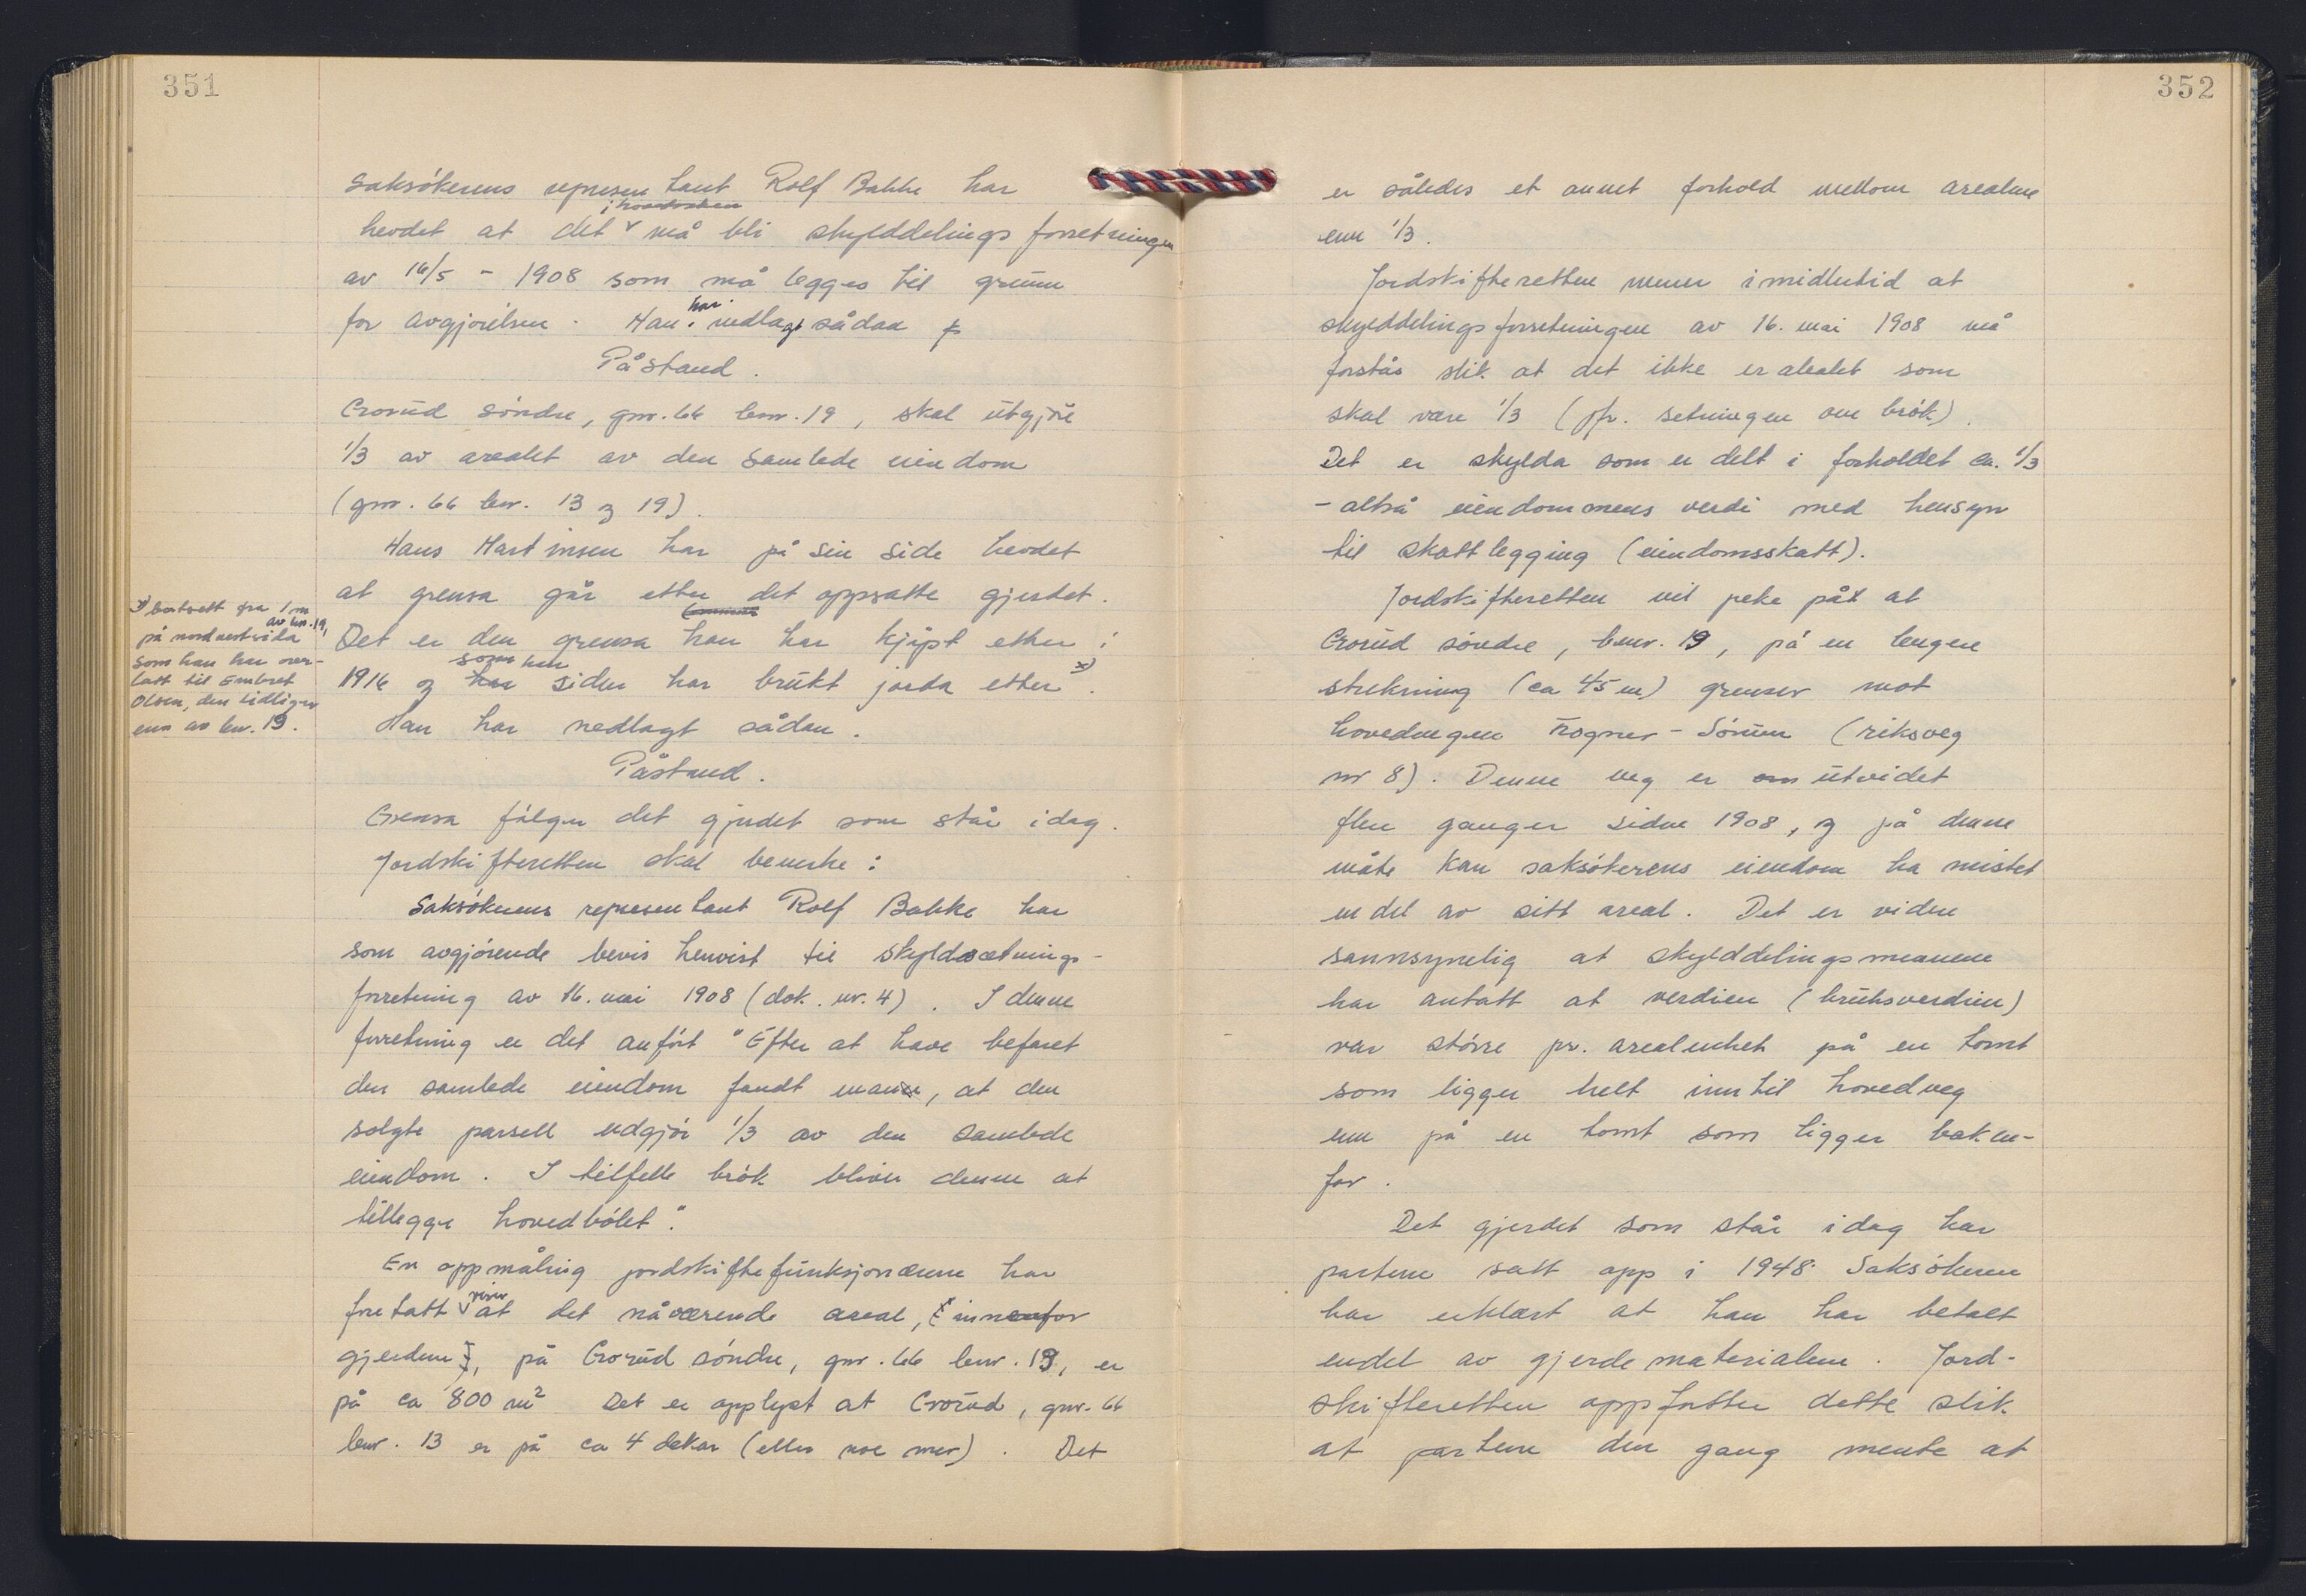 351
Saksökerens representant Rolf Bakke har
i hovedsaken
hevdet at det må bli skylddelingsforretningen
av 16/5 - 1908 som må legges til grunn
for avgjörelsen. Han har nedlagt sådan
Påstand.
Crorud söndre, gnr. 66 bnr. 19, skal utgjöre
1/3 av arealet av den samlede eiendom
(gnr. 66 bnr. 13 og 19).
Hans Martinsen har på sin side hevdet
at grensa går etter det oppsatte gjerdet.
Det er den grensa han har kjöpt etter i
1916 og som han siden har brukt jorda etter x).
Han har nedlagt sådan.
Påstand.
Grensa fölger det gjerdet som står idag.
Jordskifteretten skal bemerke:
Saksökerens representant Rolf Bakke har
som avgjörende bevis henvist til skyldsætnings-
forretning av 16. mai 1908 (dok. nr. 4). I denne
forretning er det anfört "Efter at have befaret
den samlede eiendom fandt man, at den
solgte parsell udgjör 1/3 av den samlede
eiendom. I tilfelle brök bliver denne at
tillegge hovedbölet".
En oppmåling jordskiftefunksjonærene har
foretatt viser at det nåværende areal, innenfor
gjerdene, på Crorud söndre, gnr. 66 bnr. 19, er
på ca 800 m² Det er opplyst at Crorud, gnr. 66
bnr. 13 er på ca 4 dekar (eller noe mer). Det
x) bortsett fra 1 m
på nordvestsida av bnr. 19,
som han har over-
latt til Embret
Olsen, den tidligere
eier av bnr. 19.
352
er således et annet forhold mellom arealene
enn 1/3.
Jordskifteretten mener imidlertid at
skylddelingsforretningen av 16. mai 1908 må
forstås slik at det ikke er arealet som
skal være 1/3 (jfr. setningen om brök).
Det er skylda som er delt i forholdet ca. 1/3
- altså eiendommens verdi med hensyn
til skattlegging (eiendomsskatt).
Jordskifteretten vil peke på at
Crorud söndre, bnr. 19, på en lengere
strekning (ca 45 m) grenser mot
hovedvegen Frogner - Sörum (riksveg
nr 8). Denne veg er utvidet
flere ganger siden 1908, og på denne
måte kan saksökerens eiendom ha mistet
en del av sitt areal. Det er videre
sannsynelig at skylddelingsmennene
har antatt at verdien (bruksverdien)
var större pr. arealenhet på en tomt
som ligger helt inntil hovedveg
enn på en tomt som ligger baken-
for.
Det gjerdet som står idag har
partene satt opp i 1948. Saksökeren
har erklært at han har betalt
endel av gjerdematerialene. Jord-
skifteretten oppfatter dette slik
at partene den gang mente at